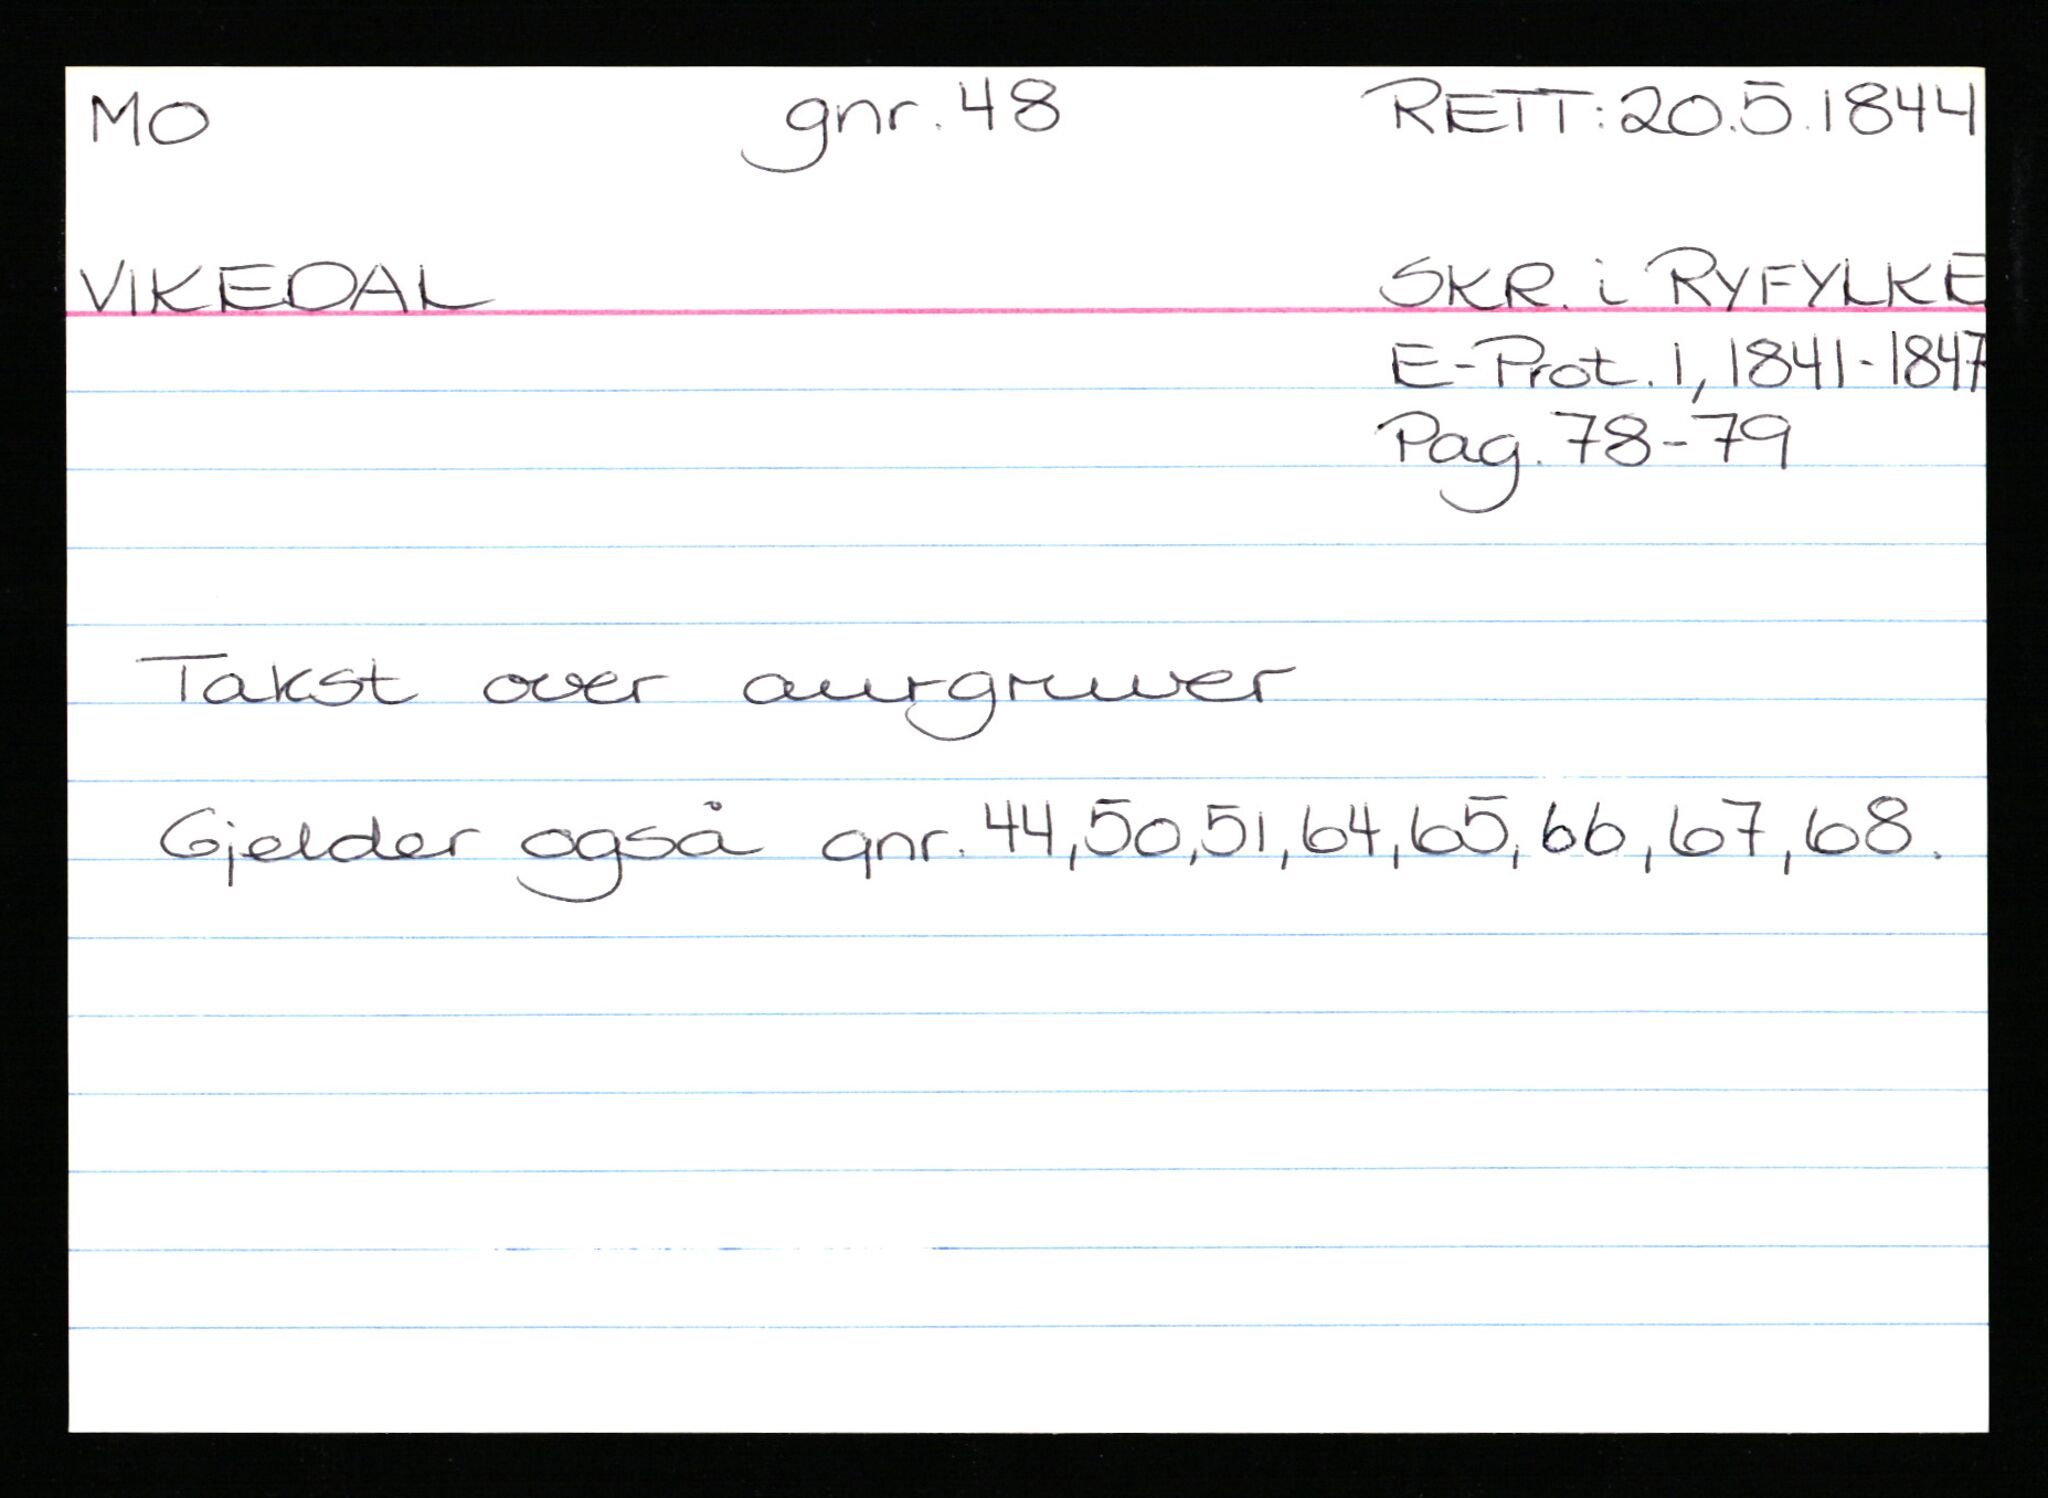 MO gnr. 48 RETT: 20.5.1844
VIKEDAL SKR. i RYFYLKE
E-Prot. 1, 1841-1847
Pag. 78-79
Takst over aurgruver
Gjelder også gnr. 44, 50, 51, 64, 65, 66, 67, 68.